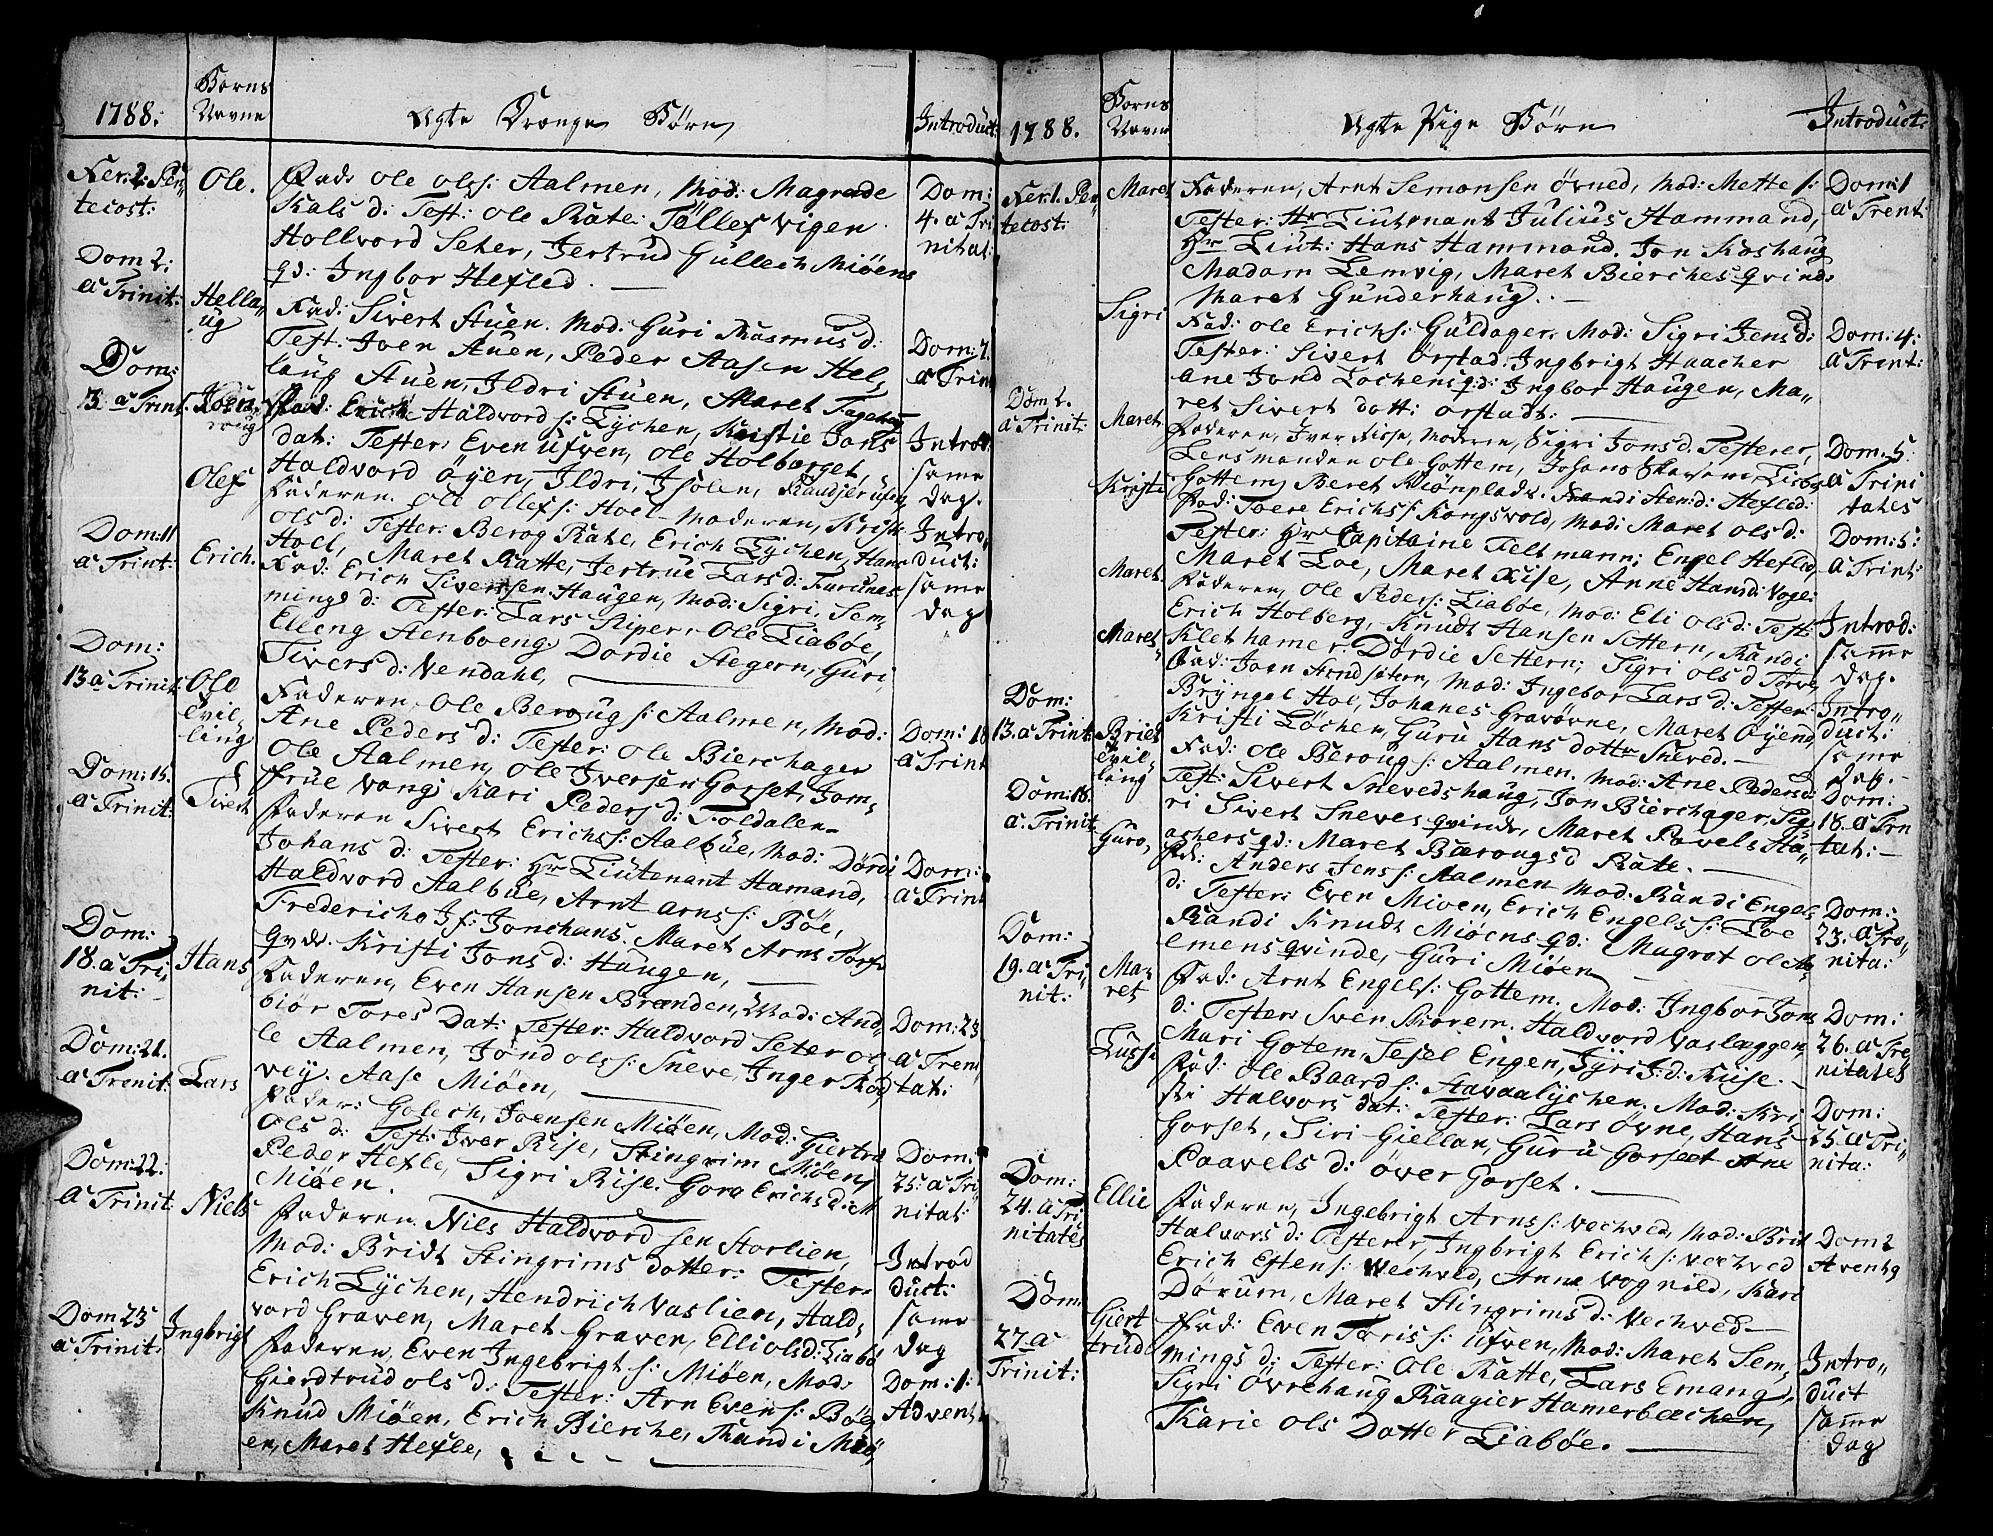 1788:
Børns
Navne
Ægte Drænge Børn
Introduct:
Fer: 2. Pen
tecost:
Ole.
Fad: Ole Ols: Aalmen, Mod: Magrade
Kals d: Test: Ole Rate. Tøllef Vigen
Hollvord Seter, Jertrud Gullech Miøens
qd: Ingbor Hefled.
Dom:
4. a Tri
nitat:
Dom 2:
a Trinit:
Hella,,
ug
Fad: Sivert Stuen. Mod: Guri Rasmus d:
Test: Joen Stuen, Peder Aasen Hel,
laug Stuen, Ildri Stuen, Maret
Dom: 7.
a Trint
Dom:
3 a Trint.
Fad: Erich Haldvord s: Lÿchen, Kristie Jons
dat: Tester: Even Ufven, Ole Holbørget,
Haldvord Øÿen, Ildri, Isolen,
Introd:
samme
Dag.
Olef
Faderen. Ole Ollefs: Hoel Moderen, Kristi
Ols d: Tester: Berog Rate, Erich Lÿchen, Hans
Hoel, Maret Ratte, Jertrue Lars d: Furunes
Intro,,
duct:
samme
Dag
Dom: 11
a Trint:
Erich.
Fad: Erich Sivertsen Haugen, Mod: Sigri Sem,
mings d: Tester: Lars Riper, Ole Liabøe,
Elleng Stenboeng, Dordie Stegern, Guri
Sivers d: Vendahl,
Dom:
13 a Trinit:
Ole
Tvil-
ling
Faderen, Ole Beroug s: Aalmen, Mod:
Ane Peders d: Tester: Ole Bierchager
Ole Aalmen, Ole Iversen Gorset, Jom,
frue Vang, Kari Peders d: Foldalen
Dom: 18
a Trint
Dom: 15.
a Trinit:
Sivert
Faderen Sivert Erichs: Aalbue, Mod: Dordi
Johans d: Tester: Hr Liutenant Hamand,
Haldvord Aalbue, Arnt Arns s: Böe,
Fredericho J s: Jonchans. Maret Arns
Qvde. Kristi Jons d: Haugen,
Dom:
a Trint
Dom:
18. a Tri
nit:
Hans
Faderen, Even Hansen Brenden, Mod: And,
biør Tores Dat: Tester: Haldvord Seter Ol
le Aalmen, Jond Ols s: Sneve, Inger Rod
vey. Aase Miøen,
Dom: 23
a Treni
tat:
Dom: 21.
a Trenit:
Lars
Fader: Golech, Joensen Miøen, Mod: Giertru
Ols d: Test: Iver Rise, Stingrim Miøen
Peder Hefle, Sigri Rise. Goro Erichs d:
Miøen.
Dom:
25: a Tri
nitat:
Dom: 22:
a Trinit
Niels
Faderen. Nils Haldvord sen Storlien,
Mod: Bridt Stingrims dotter: Tester
Erich Lÿchen, Hendrich Vaslien, Hald,
vord Graven, Maret Graven, Elli Ols d: Liabø
Introd
duct:
samme
Dag
Dom 23
a Trinit:
Ingbrigt
Faderen. Even Ingebrigt s: Miøen, Mod:
Gierdtrud Ols d: Tester: Arn Even s: Böe
Knud Miøen, Erich Bierche, Randi Miø,
en, Maret Hefle,
Dom: 1:
Advent
1788.
Børns
Navne
Ægte Pige Børn
Introduct:
Fer: 1. Pen
tecost:
Maret
Faderen, Arnt Semonsen Øvned, Mod: Mette s:
Tester: Hr Liutenant Julius Hammand,
Hr Liut: Hans Hammond. Jon Koshaug
Madam Lemvig, Maret Bierches Qvinde
Maret Gunderhaug.
Dom: 1
a Trent
Sigri
Fad: Ole Erichs: Guldager. Mod: Sigri Jens d:
Tester: Sivert Ørstad Ingbrigt Haacher
Ane Jond Lochens qd: Ingbor Haugen, Ma,,
ret Sivert dott: Orstadt:
Dom: 4:
a Trent:
Dom 2.
a Trinit:
Maret
Faderen, Iver Risse, Moderen, Sigri Jons d. Testerer,
Lensmanden Ole Gottem, Johans
Gottem, Beret Miønplads. Randi Sten: d: Hefled:
Dom: 5:
a Trini
tates
Kristi
Fad: Toere Erichs s: Kongsvold, Mod: Maret Ols d:
Tester: Hr Capitaine Feltmann; Engel Hefled,
Maret Loe, Maret Rise, Anne Hans d: Voge:
Dom: 5:
a Trint:
Maret
Faderen, Ole Peders: Liabøe, Mod: Eli Ols d: Test:
Erich Holberg, Knudt Hansen Settern, Randi
Klethamer, Dordie Settern; Sigri Ols d
Introd:
samme
Dag.
Maret
Fad: Joen Arndsetern, Mod: Ingebor Lars d: Tester:
Bryngel Hoe, Johanes Gravøvne, Maret Øyen
Kristi Löchen, Guru Hans dotter Sneved.
Intro,,
duct:
samme
Dag.
Dom:
13. a Trint
Briet
Tvil-
ling
Fad: Ole Beroug s: Aalmen. Mod: Ane Peders d
Test: Sivert Snevedshaug, Jon Bierchager, Sig,
ri Sivert Sneves Qvinde, Maret Pavels Ha,,
achers qd: Maret Berougs d Rate.
Dom:
18. a Trn
tat:
Dom: 18.
a Trinit
Guro,
Fad: Anders Jens s: Aalmen Mod: Randi Engels
d: Tester: Even Mioen, Erich Engels s: Loe
Randi Knudt Miøens qd: Magrot Ole
lmens Qvinde, Guri Miöen
Dom:
23. a Tri,,
nita:
Dom:
19. a Tri
nit:
Ma,,
ret
Fad: Arnt Engels: Gottem. Mod: Ingbor Jons
d: Tester: Sven Skorem. Haldvord Vaslaggen,
Mari Gotem, Sesel Engen, Gÿri J: d: Riise.
Dom:
26. a Tre
nitates
Lussi
Fad: Ole Baard s: Stavaalÿchen, Mod: Kri,
sti Halvors dat: Tester: Lars Övne, Hans
Gorset, Siri Giellan, Guru Gorset Ane
Paavels d: Över Gorset.
Dom:
25. a Tri,,
nita:
Dom:
24. a Tri
nitates
Ellie
Faderen, Ingebrigt Arns s: Vechved, Mod: Brit
Halvors d: Testerer, Ingbrigt Erich s: Vechved
Erich Estens s: Vechved, Anne Vognild, Kari
Dörum, Maret Stingrims d: Vechved
Dom 2
Aventg
Dom
27. a
Trinit:
Giert
trud
Fad: Even Toris s: Ufven, Mod: Maret Sem,
mings d: Tester: Ole Ratte, Lars Emang,
Sigri Övrehaug Raagier Hamerbachen,
Karie Ols Datter Liabøe.
Intro,,
duct
samme
Dag